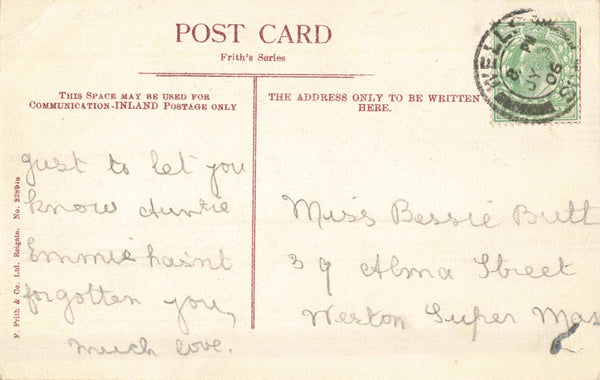 POST CARD
Frith's Series
THIS SPACE MAY BE USED FOR
COMMUNICATION-INLAND POSTAGE ONLY
THE ADDRESS ONLY TO BE WRITTEN
HERE.
Just to let you
know Auntie
Emmie hasn't
forgotten you,
much love.
Miss Bessie Butt
39 Alma Street
Weston Super Mare
F. Frith & Co. Ltd. Reigate. No. 23894a
8 PM
JY
06